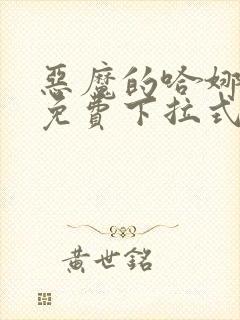 惡魔的哈娜
免費下拉式
黃世銘